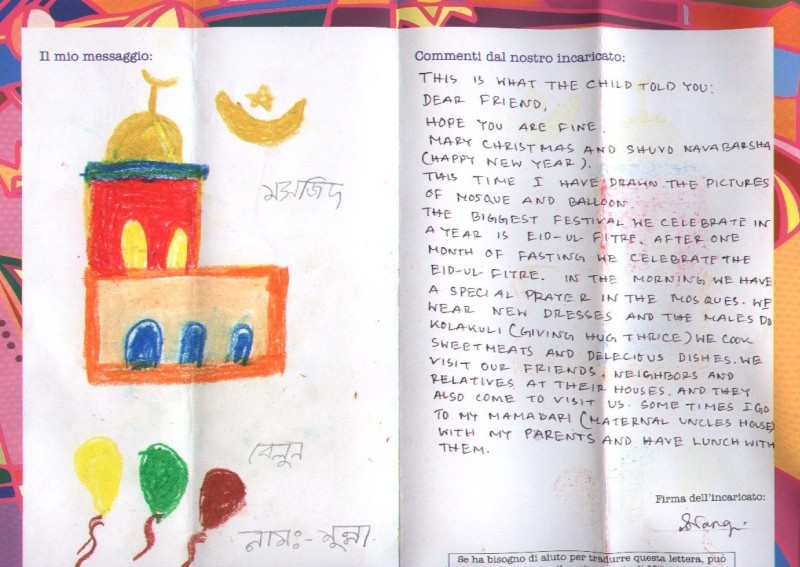 Il mio messaggio:
মসজিদ
বেলুন
নামঃ- মুন্না
Commenti dal nostro incaricato:
THIS IS WHAT THE CHILD TOLD YOU:
DEAR FRIEND,
HOPE YOU ARE FINE.
MARY CHRISTMAS AND SHUVO NAVABARSHA
(HAPPY NEW YEAR).
THIS TIME I HAVE DRAWN THE PICTURES
OF MOSQUE AND BALLOON.
THE BIGGEST FESTIVAL WE CELEBRATE IN
A YEAR IS EID-UL FITRE. AFTER ONE
MONTH OF FASTING WE CELEBRATE THE
EID-UL FITRE. IN THE MORNING WE HAVE
A SPECIAL PRAYER IN THE MOSQUES. WE
WEAR NEW DRESSES AND THE MALES DO
KOLAKULI (GIVING HUG THRICE) WE COOK
SWEETMEATS AND DELECIOUS DISHES. WE
VISIT OUR FRIENDS, NEIGHBORS AND
RELATIVES AT THEIR HOUSES. AND THEY
ALSO COME TO VISIT US. SOME TIMES I GO
TO MY MAMABARI (MATERNAL UNCLES HOUSE)
WITH MY PARENTS AND HAVE LUNCH WITH
THEM.
Firma dell'incaricato:
Se ha bisogno di aiuto per tradurre questa lettera, può